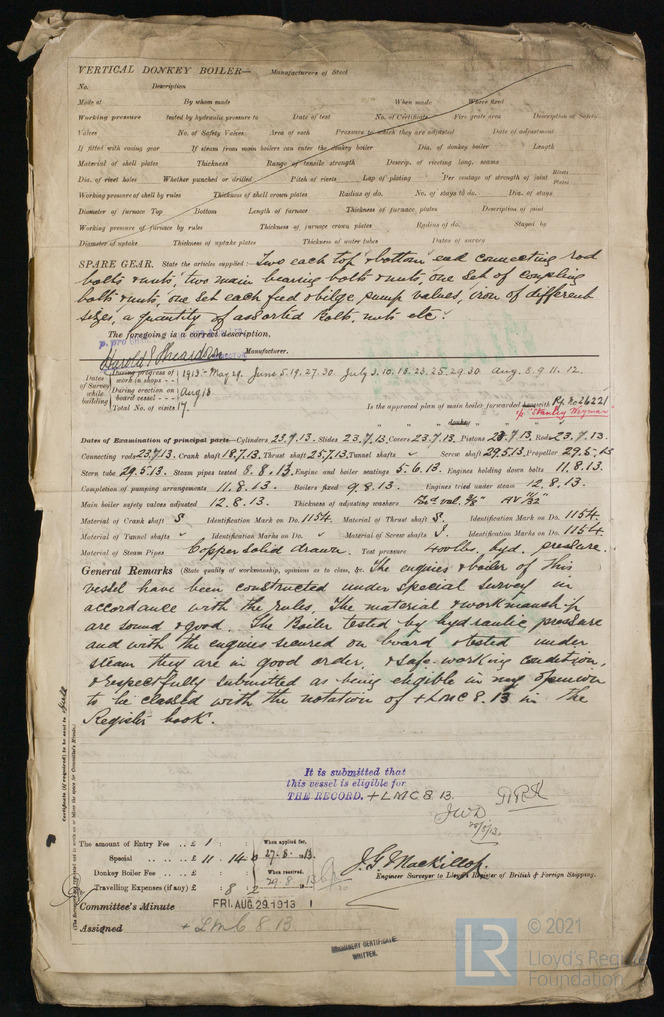 VERTICAL DONKEY BOILER— Manufacturers of Steel
No. Description
Made at By whom made When made Where fixed
Working pressure tested by hydraulic pressure to Date of test No. of Certificate Fire grate area Description of Safety
Valves No. of Safety Valves Area of each Pressure to which they are adjusted Date of adjustment
If fitted with easing gear If steam from main boilers can enter the donkey boiler Dia. of donkey boiler Length
Material of shell plates Thickness Range of tensile strength Descrip. of riveting long. seams
Dia. of rivet holes Whether punched or drilled Pitch of rivets Lap of plating Per centage of strength of joint Rivets Plates
Working pressure of shell by rules Thickness of shell crown plates Radius of do. No. of stays to do. Dia. of stays
Diameter of furnace Top Bottom Length of furnace Thickness of furnace plates Description of joint
Working pressure of furnace by rules Thickness of furnace crown plates Radius of do. Stayed by
Diameter of uptake Thickness of uptake plates Thickness of water tubes Dates of survey
SPARE GEAR. State the articles supplied:— Two each top & bottom end connecting rod
bolts & nuts, two main bearing bolts & nuts, one set of coupling
bolts & nuts, one set each feed & bilge pump valves, iron of different
sizes, a quantity of assorted bolts, nuts etc.
The foregoing is a correct description,
Manufacturer.
Dates of Survey while building
During progress of work in shops - - 1913 - May 29. June 5. 19. 27. 30. July 3. 10. 18. 23. 25. 29. 30. Aug. 8. 9. 11. 12.
During erection on board vessel - - - Aug 18
Total No. of visits 17. Is the approved plan of main boiler forwarded herewith
p. Stanley Weymar
" " " donkey " " "
Dates of Examination of principal parts—Cylinders 23.7.13. Slides 23.7.13. Covers 23.7.13. Pistons 23.7.13. Rods 23.7.13.
Connecting rods 23.7.13. Crank shaft 18.7.13. Thrust shaft 25.7.13. Tunnel shafts " Screw shaft 29.5.13. Propeller 29.5.13
Stern tube 29.5.13. Steam pipes tested 8.8.13. Engine and boiler seatings 5.6.13. Engines holding down bolts 11.8.13.
Completion of pumping arrangements 11.8.13. Boilers fixed 9.8.13. Engines tried under steam 12.8.13.
Main boiler safety valves adjusted 12.8.13. Thickness of adjusting washers
Material of Crank shaft S. Identification Mark on Do. 1154. Material of Thrust shaft S. Identification Mark on Do. 1154.
Material of Tunnel shafts " Identification Marks on Do. " Material of Screw shafts S. Identification Marks on Do. 1154.
Material of Steam Pipes Copper solid drawn. Test pressure 400 lbs. hyd. pressure.
General Remarks (State quality of workmanship, opinions as to class, &c. The engines & boiler of this
vessel have been constructed under special survey in
accordance with the rules. The material & workmanship
are sound & good. The Boiler tested by hydraulic pressure
and with the engines secured on board & tested under
steam they are in good order, & safe working condition,
& respectfully submitted as being eligible in my opinion
to be classed with the notation of + LMC 8.13 in the
Register book.
Certificate (if required) to be sent to
It is submitted that
this vessel is eligible for
THE RECORD. + LMC 8.13.
JWD
The amount of Entry Fee .. £ 1 : When applied for,
Special .. .. .. £ 11 . 14 . 0 27.8.1913.
Donkey Boiler Fee .. .. £ : When received,
Travelling Expenses (if any) £ : 8 . 2 29.8.1913
J. G. Mackillop.
Engineer Surveyor to Lloyd's Register of British & Foreign Shipping.
Committee's Minute FRI. AUG. 29. 1913
Assigned + LMC 8.13
MACHINERY CERTIFICATE
WRITTEN.
LR
© 2021
Lloyd's Register
Foundation